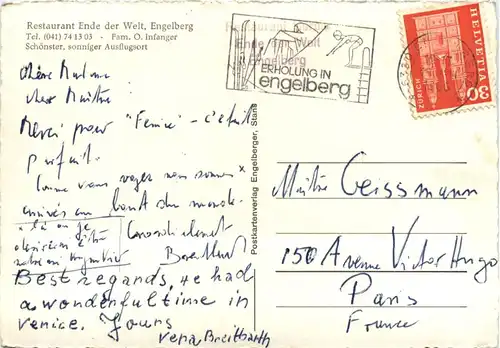 Restaurant Ende der Welt, Engelberg
Tel. (041) 74 13 03 - Fam. O. Infanger
Schönster, sonniger Ausflugsort
Restaurant
Ende der Welt
Engelberg
ERHOLUNG IN
engelberg
HELVETIA
ZÜRICH
30
Chère Madame
cher Maître
Merci pour "Fenice" - c'était
parfait.
Comme vous voyez nous sommes x
arrivés au bout du monde
x là où je
Cordialement
Best regards, we had
a wonderful time in
Venice. Yours
Vera Breitbarth
Postkartenverlag Engelberger, Stans
Maître Geissmann
150 Avenue Victor Hugo
Paris
France